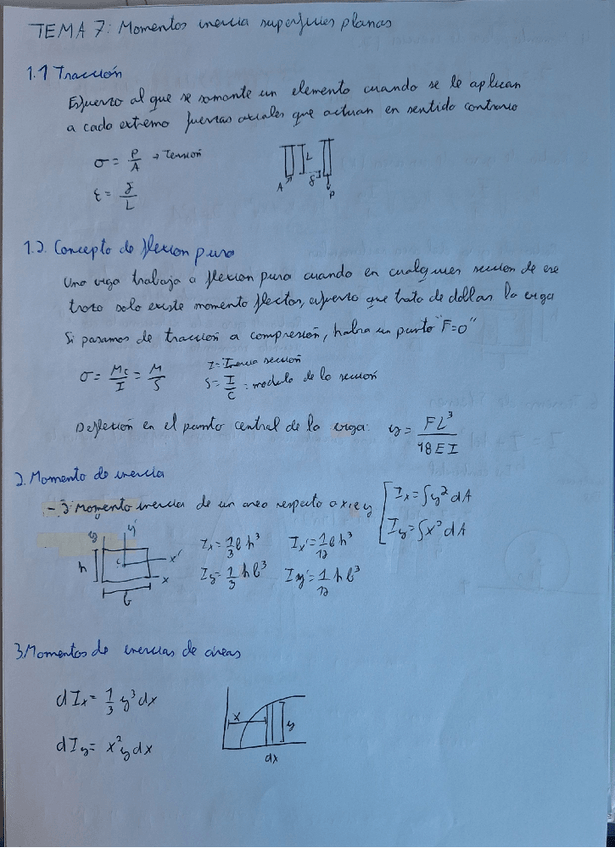 TEMA 7: Momentos inercia superficies planas
1.1 Tracción
Esfuerzo al que se somete un elemento cuando se le aplican
a cada extremo fuerzas axiales que actuan en sentido contrario
σ = P/A → Tensión
ε = δ/L
A L δ P
1.2. Concepto de flexion pura
Una viga trabaja a flexion pura cuando en cualquier sección de ese
trozo solo existe momento flector, esfuerzo que trata de doblar la viga
Si pasamos de tracción a compresión, habra un punto "F=0"
σ = Mc/I = M/S
I = Inercia sección
S = I/C = modulo de la sección
Deflexión en el punto central de la viga: y = FL³/48EI
2. Momento de inercia
- Momento inercia de un area respecto a x e y
Ix = ∫y² dA
Iy = ∫x² dA
y y' h c x' x b
Ix = 1/3 b h³ Ix' = 1/12 b h³
Iy = 1/3 h b³ Iy' = 1/12 h b³
3. Momentos de inercias de areas
dIx = 1/3 y³ dx
dIy = x² y dx
x y
dx